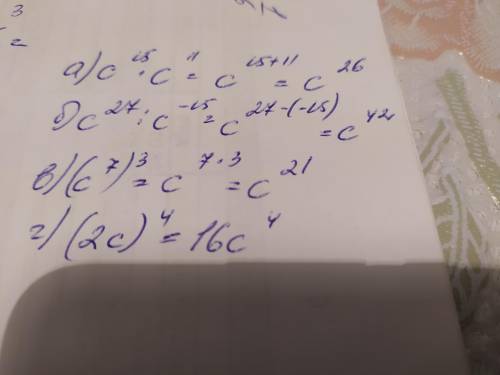 3
=
а) c¹⁵ · c¹¹ = c¹⁵⁺¹¹ = c²⁶
б) c²⁷ : c⁻¹⁵ = c²⁷⁻⁽⁻¹⁵⁾ = c⁴²
в) (c⁷)³ = c⁷·³ = c²¹
г) (2c)⁴ = 16c⁴